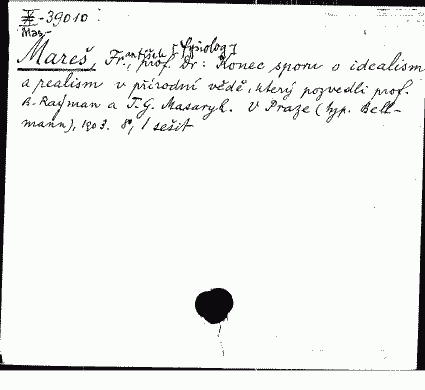 II-39010
Mas-
Mareš, František [fysiolog]
prof. Dr: Konec sporu o idealism
a realism v přírodní vědě, který pozvedli prof.
B. Rayman a T. G. Masaryk. V Praze (typ. Bell-
mann), 1903. 8°, 1 sešit